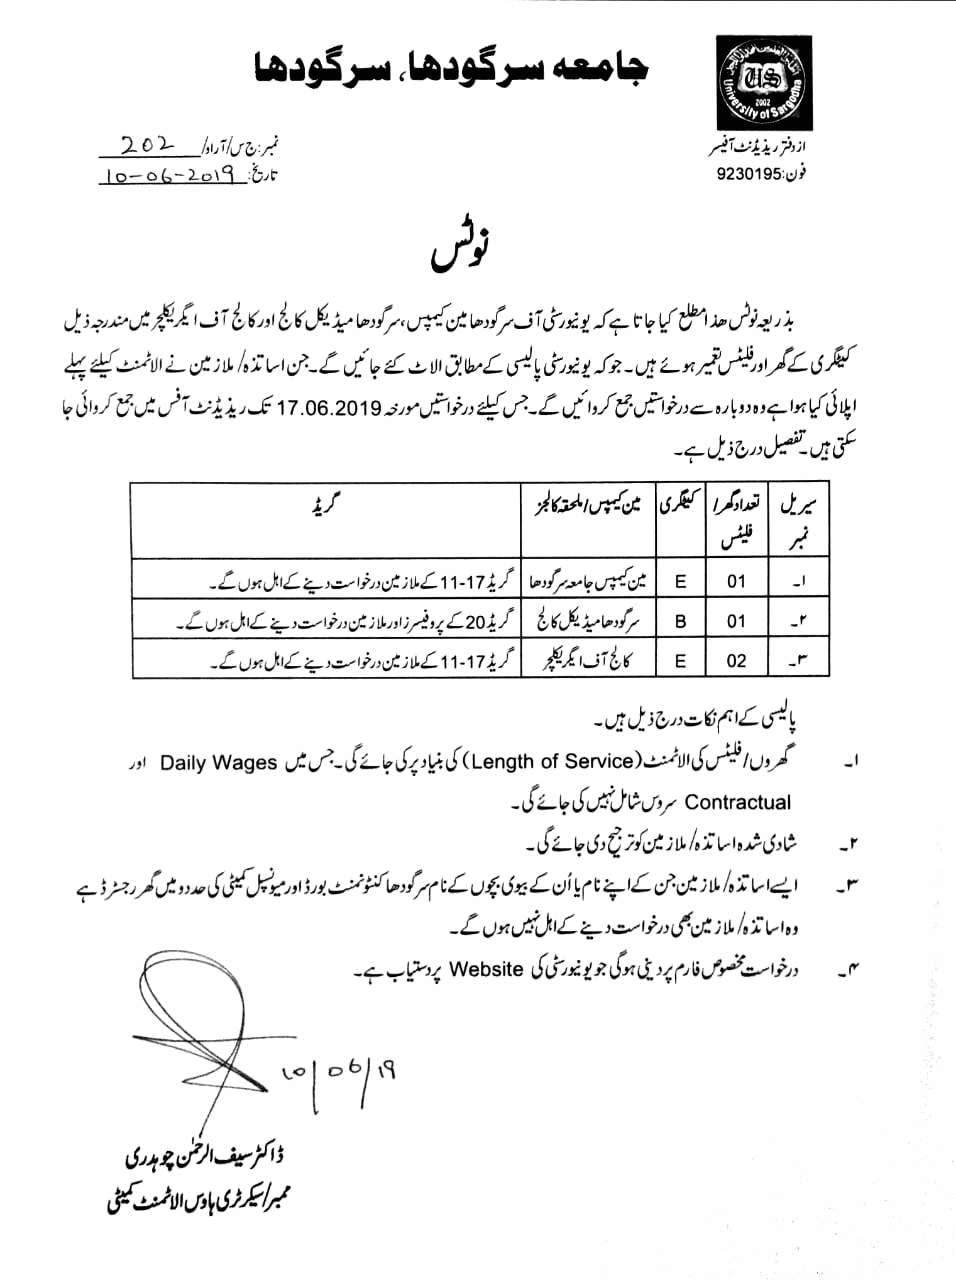 جامعہ سرگودھا، سرگودھا
University of Sargodha
US
2002
از دفتر ریذیڈنٹ آفیسر
فون:9230195
نمبر:ج س/آر او/ 202
تاریخ: 10-06-2019
نوٹس
بذریعہ نوٹس ھذا مطلع کیا جاتا ہے کہ یونیورسٹی آف سرگودھا مین کیمپس، سرگودھا میڈیکل کالج اور کالج آف ایگریکلچر میں مندرجہ ذیل
کیٹگری کے گھر اور فلیٹس تعمیر ہوئے ہیں۔ جو کہ یونیورسٹی پالیسی کے مطابق الاٹ کئے جائیں گے۔ جن اساتذہ/ملازمین نے الاٹمنٹ کیلئے پہلے
اپلائی کیا ہوا ہے وہ دوبارہ سے درخواستیں جمع کروائیں گے۔ جس کیلئے درخواستیں مورخہ 17.06.2019 تک ریذیڈنٹ آفس میں جمع کروائی جا
سکتی ہیں۔ تفصیل درج ذیل ہے۔
سیریل نمبر | تعداد گھر/فلیٹس | کیٹگری | مین کیمپس/ملحقہ کالجز | گریڈ
۱۔ | 01 | E | مین کیمپس جامعہ سرگودھا | گریڈ 17-11 کے ملازمین درخواست دینے کے اہل ہوں گے۔
۲۔ | 01 | B | سرگودھا میڈیکل کالج | گریڈ 20 کے پروفیسرز اور ملازمین درخواست دینے کے اہل ہوں گے۔
۳۔ | 02 | E | کالج آف ایگریکلچر | گریڈ 17-11 کے ملازمین درخواست دینے کے اہل ہوں گے۔
پالیسی کے اہم نکات درج ذیل ہیں۔
۱۔ گھروں/فلیٹس کی الاٹمنٹ (Length of Service) کی بنیاد پر کی جائے گی۔ جس میں Daily Wages اور
Contractual سروس شامل نہیں کی جائے گی۔
۲۔ شادی شدہ اساتذہ/ملازمین کو ترجیح دی جائے گی۔
۳۔ ایسے اساتذہ/ملازمین جن کے اپنے نام یا اُن کے بیوی بچوں کے نام سرگودھا کنٹونمنٹ بورڈ اور میونسپل کمیٹی کی حدود میں گھر رجسٹرڈ ہے
وہ اساتذہ/ملازمین بھی درخواست دینے کے اہل نہیں ہوں گے۔
۴۔ درخواست مخصوص فارم پر دینی ہوگی جو یونیورسٹی کی Website پر دستیاب ہے۔
10/06/19
ڈاکٹر سیف الرحمٰن چوہدری
ممبر/سیکرٹری ہاوس الاٹمنٹ کمیٹی